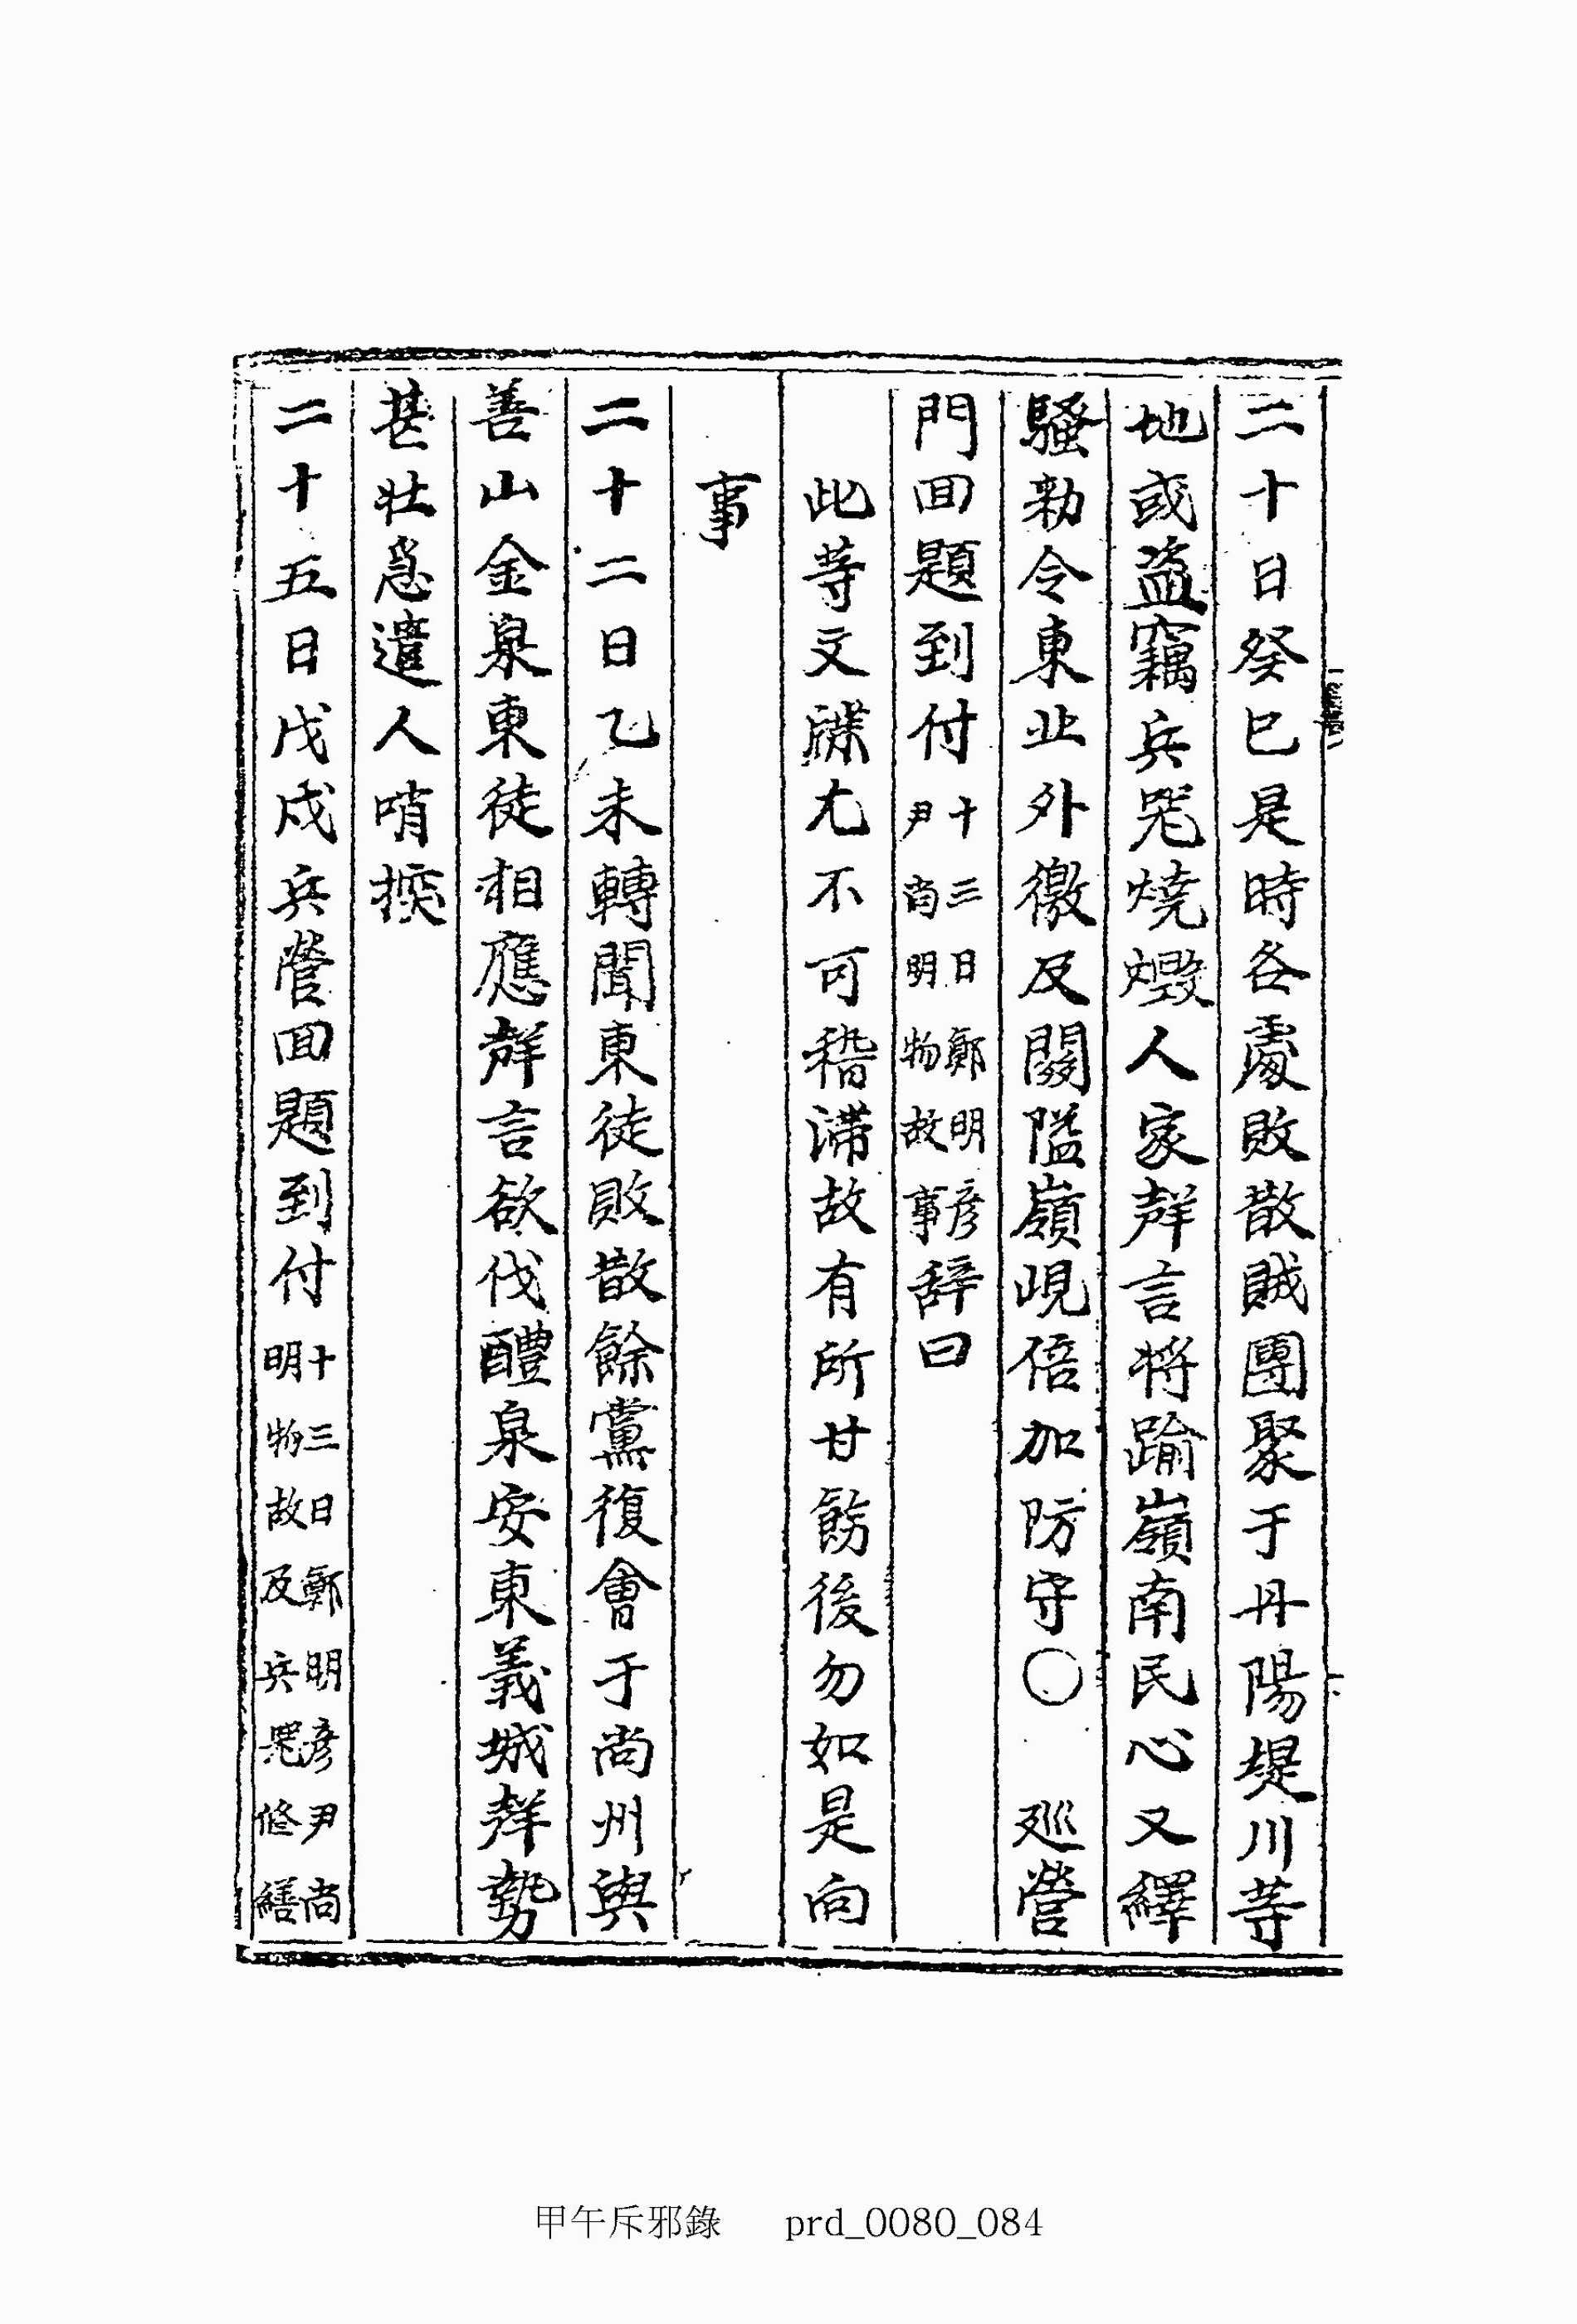 二十日癸巳是時各處敗散賊團聚于丹陽堤川等
地或盜竊兵器燒燬人家聲言將踰嶺南民心又繹
騷勅令東北外徼及關隘嶺峴倍加防守〇 廵營
門回題到付十三日鄭明彦尹尙明物故事辞曰
此等文牒尤不可稽滯故有所甘飭後勿如是向
事
二十二日乙未轉聞東徒敗散餘黨復會于尙州與
善山金泉東徒相應聲言欲伐醴泉安東義城聲勢
甚壮急遣人哨探
二十五日戊戌兵營回題到付十三日鄭明彦尹尙明物故及兵器修繕
甲午斥邪錄 prd_0080_084